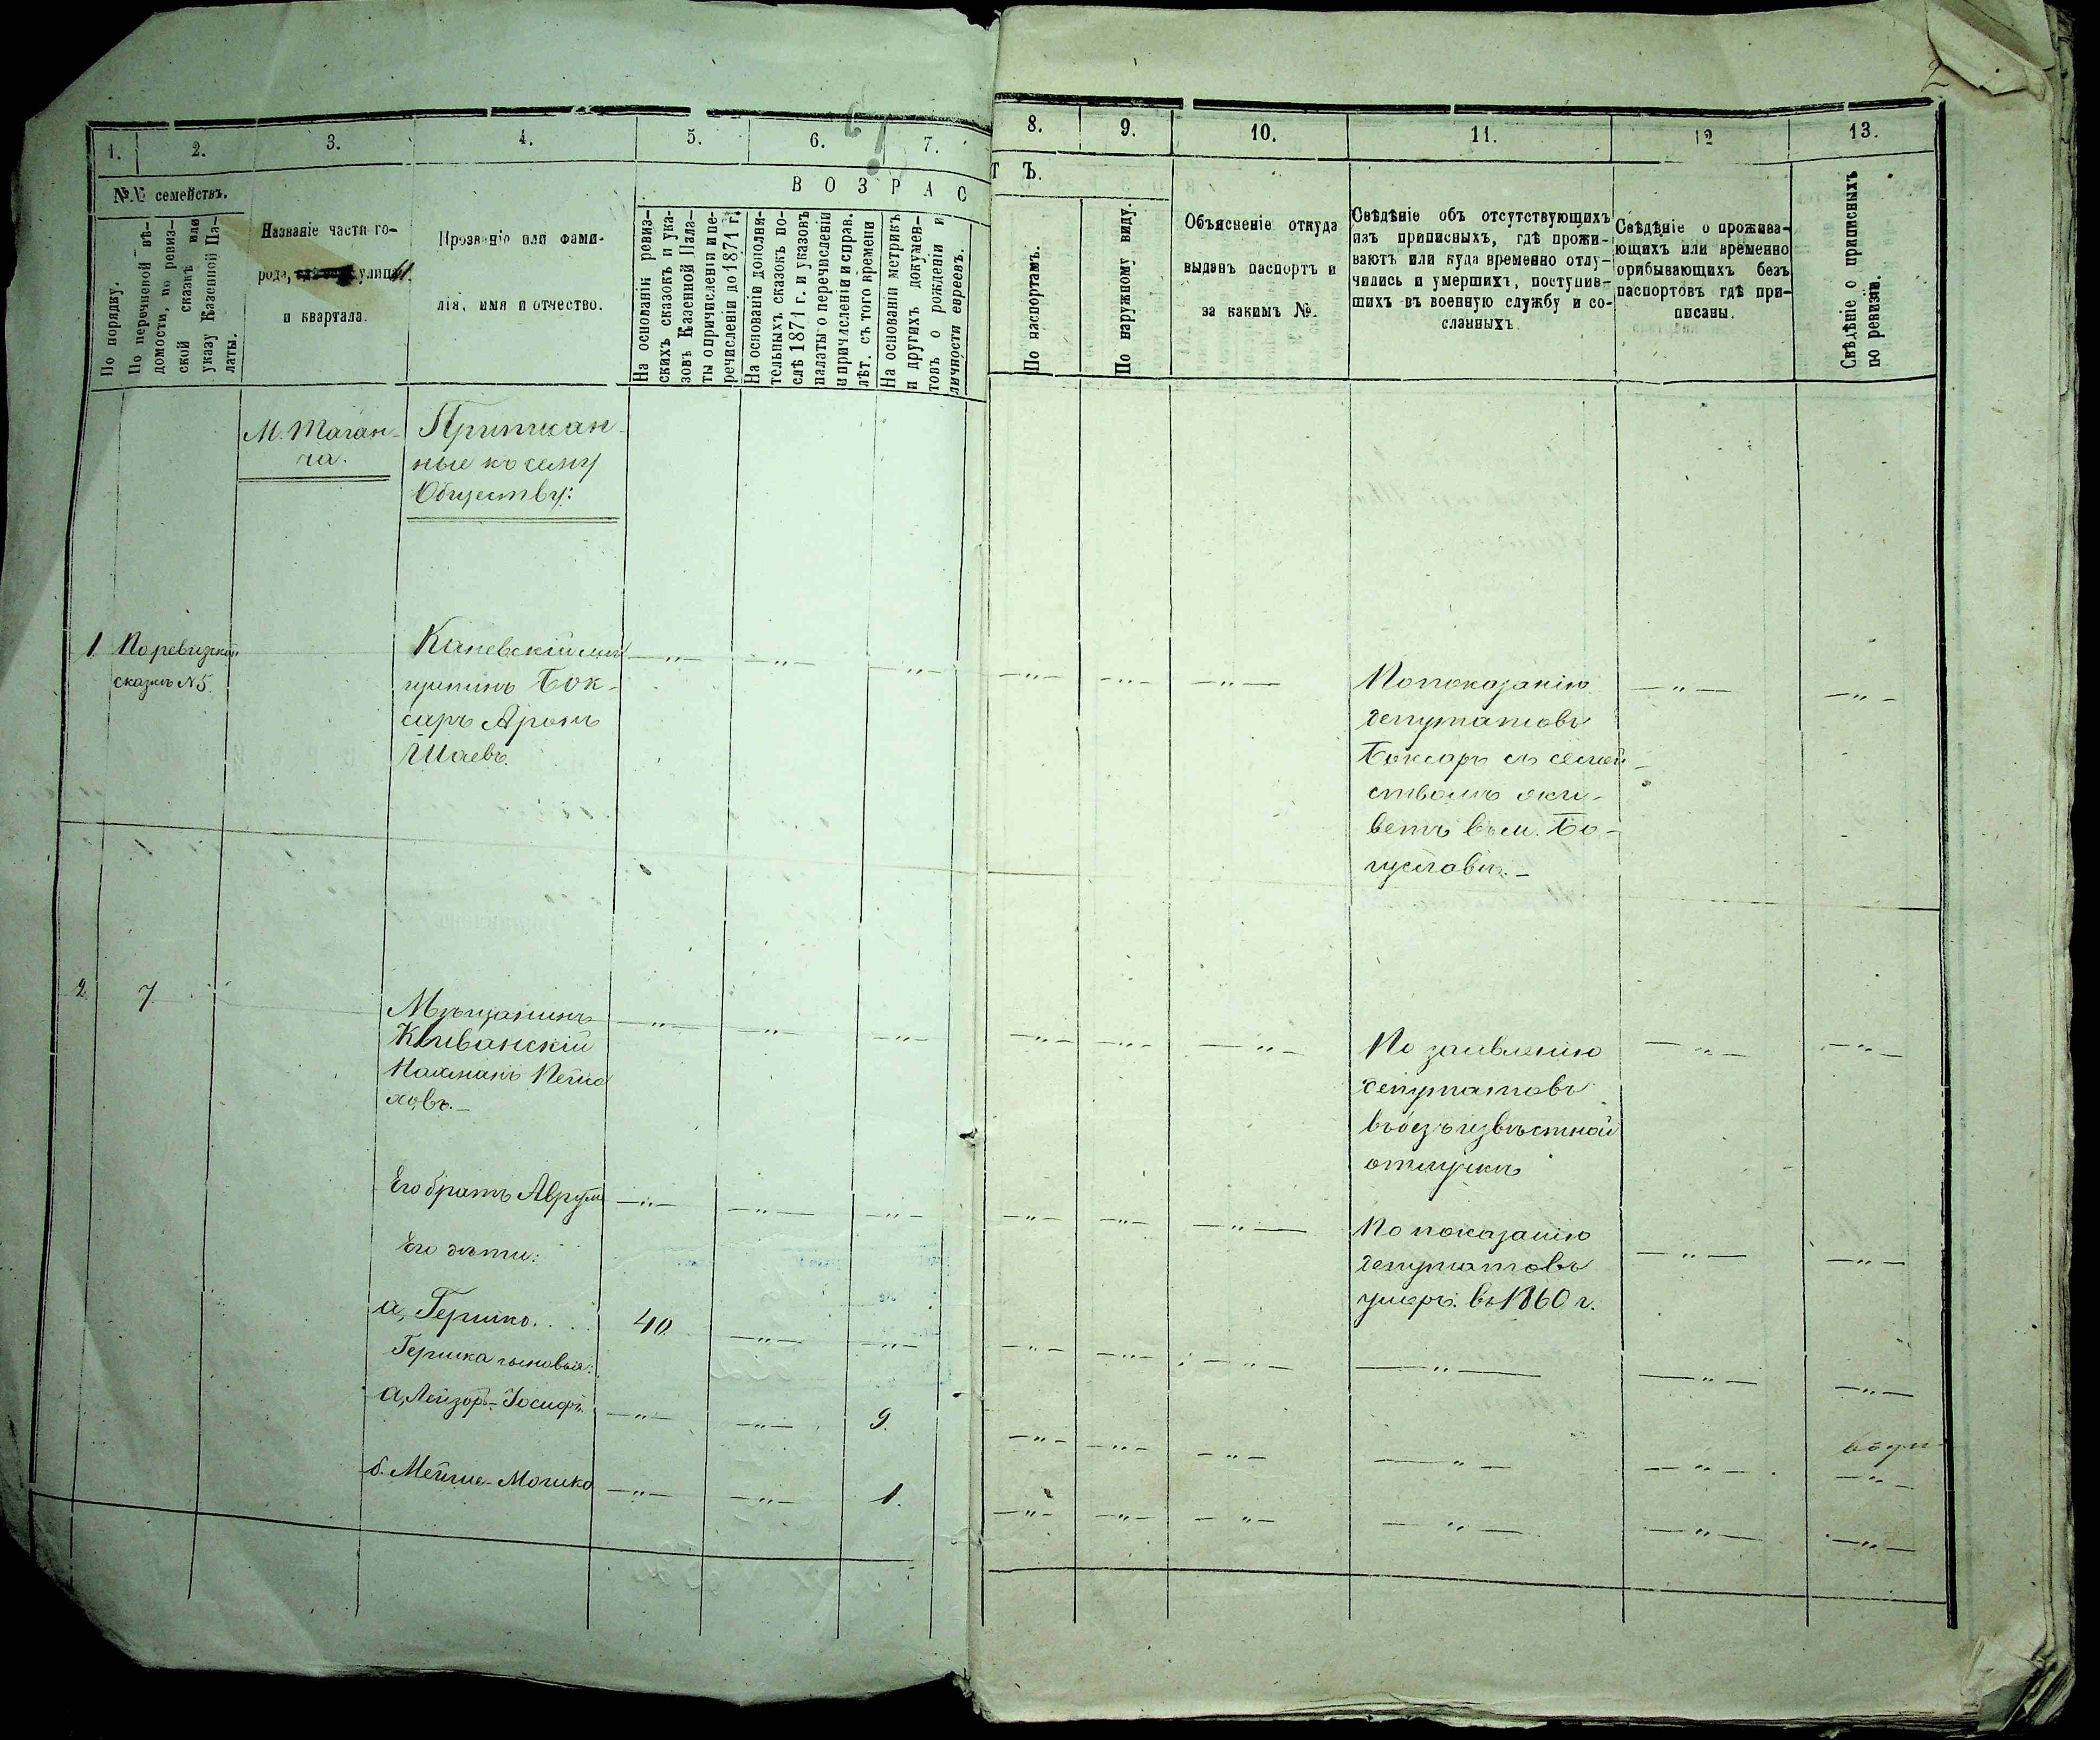 2
1. 2. 3. 4. 5. 6. 7.
8. 9. 10. 11. 12 13.
В О З Р А С
Т Ъ.
№№ семействъ.
По порядку.
По перечневой вѣ-
домости, по ревиз-
ской сказкѣ или
указу Казенной Па-
латы.
Названіе части го-
рода, улицы
и квартала.
Прозваніе или фами-
лія, имя и отчество.
На основаніи ревиз-
скихъ сказокъ и ука-
зовъ Казенной Пала-
ты о причисленіи и пе-
речисленіи до 1871 г.
На основаніи дополни-
тельныхъ сказокъ по-
слѣ 1871 г. и указовъ
палаты о перечисленіи
и причисленіи и справ.
лѣт. съ того времени
На основаніи метрикъ
и другихъ докумен-
товъ о рожденіи и
личности евреевъ.
По паспортамъ.
По наружному виду.
Объясненіе откуда
выданъ паспортъ и
за какимъ №.
Свѣдѣніе объ отсутствующихъ
изъ приписныхъ, гдѣ прожи-
ваютъ или куда временно отлу-
чились и умершихъ, поступив-
шихъ въ военную службу и со-
сланныхъ.
Свѣдѣніе о прожива-
ющихъ или временно
прибывающихъ безъ
паспортовъ гдѣ при-
писаны.
Свѣдѣніе о приписныхъ
по ревизіи.
М. Таган-
ча.
Приписан-
ные къ сему
Обществу:
1 По ревизской
сказкѣ №5.
Каневскій мѣ-
щанинъ Бок-
саръ Аронъ
Шаевъ.
По показанію
депутатовъ
Боксаръ съ семей-
ствомъ жи-
ветъ въ м. Бо-
гуславѣ.-
2. 7
Мѣщанинъ
Нахманъ
По заявленію
депутатовъ
въ безъизвѣстной
отлучкѣ
Его братъ Аврумъ
По показанію
депутатовъ
умеръ. въ 1860 г.
Его дѣти:
а, Гершко. . . 40
Гершка сыновья:
а, Лейзоръ-Іосифъ. 9.
б. Мейше-Мошко 1.